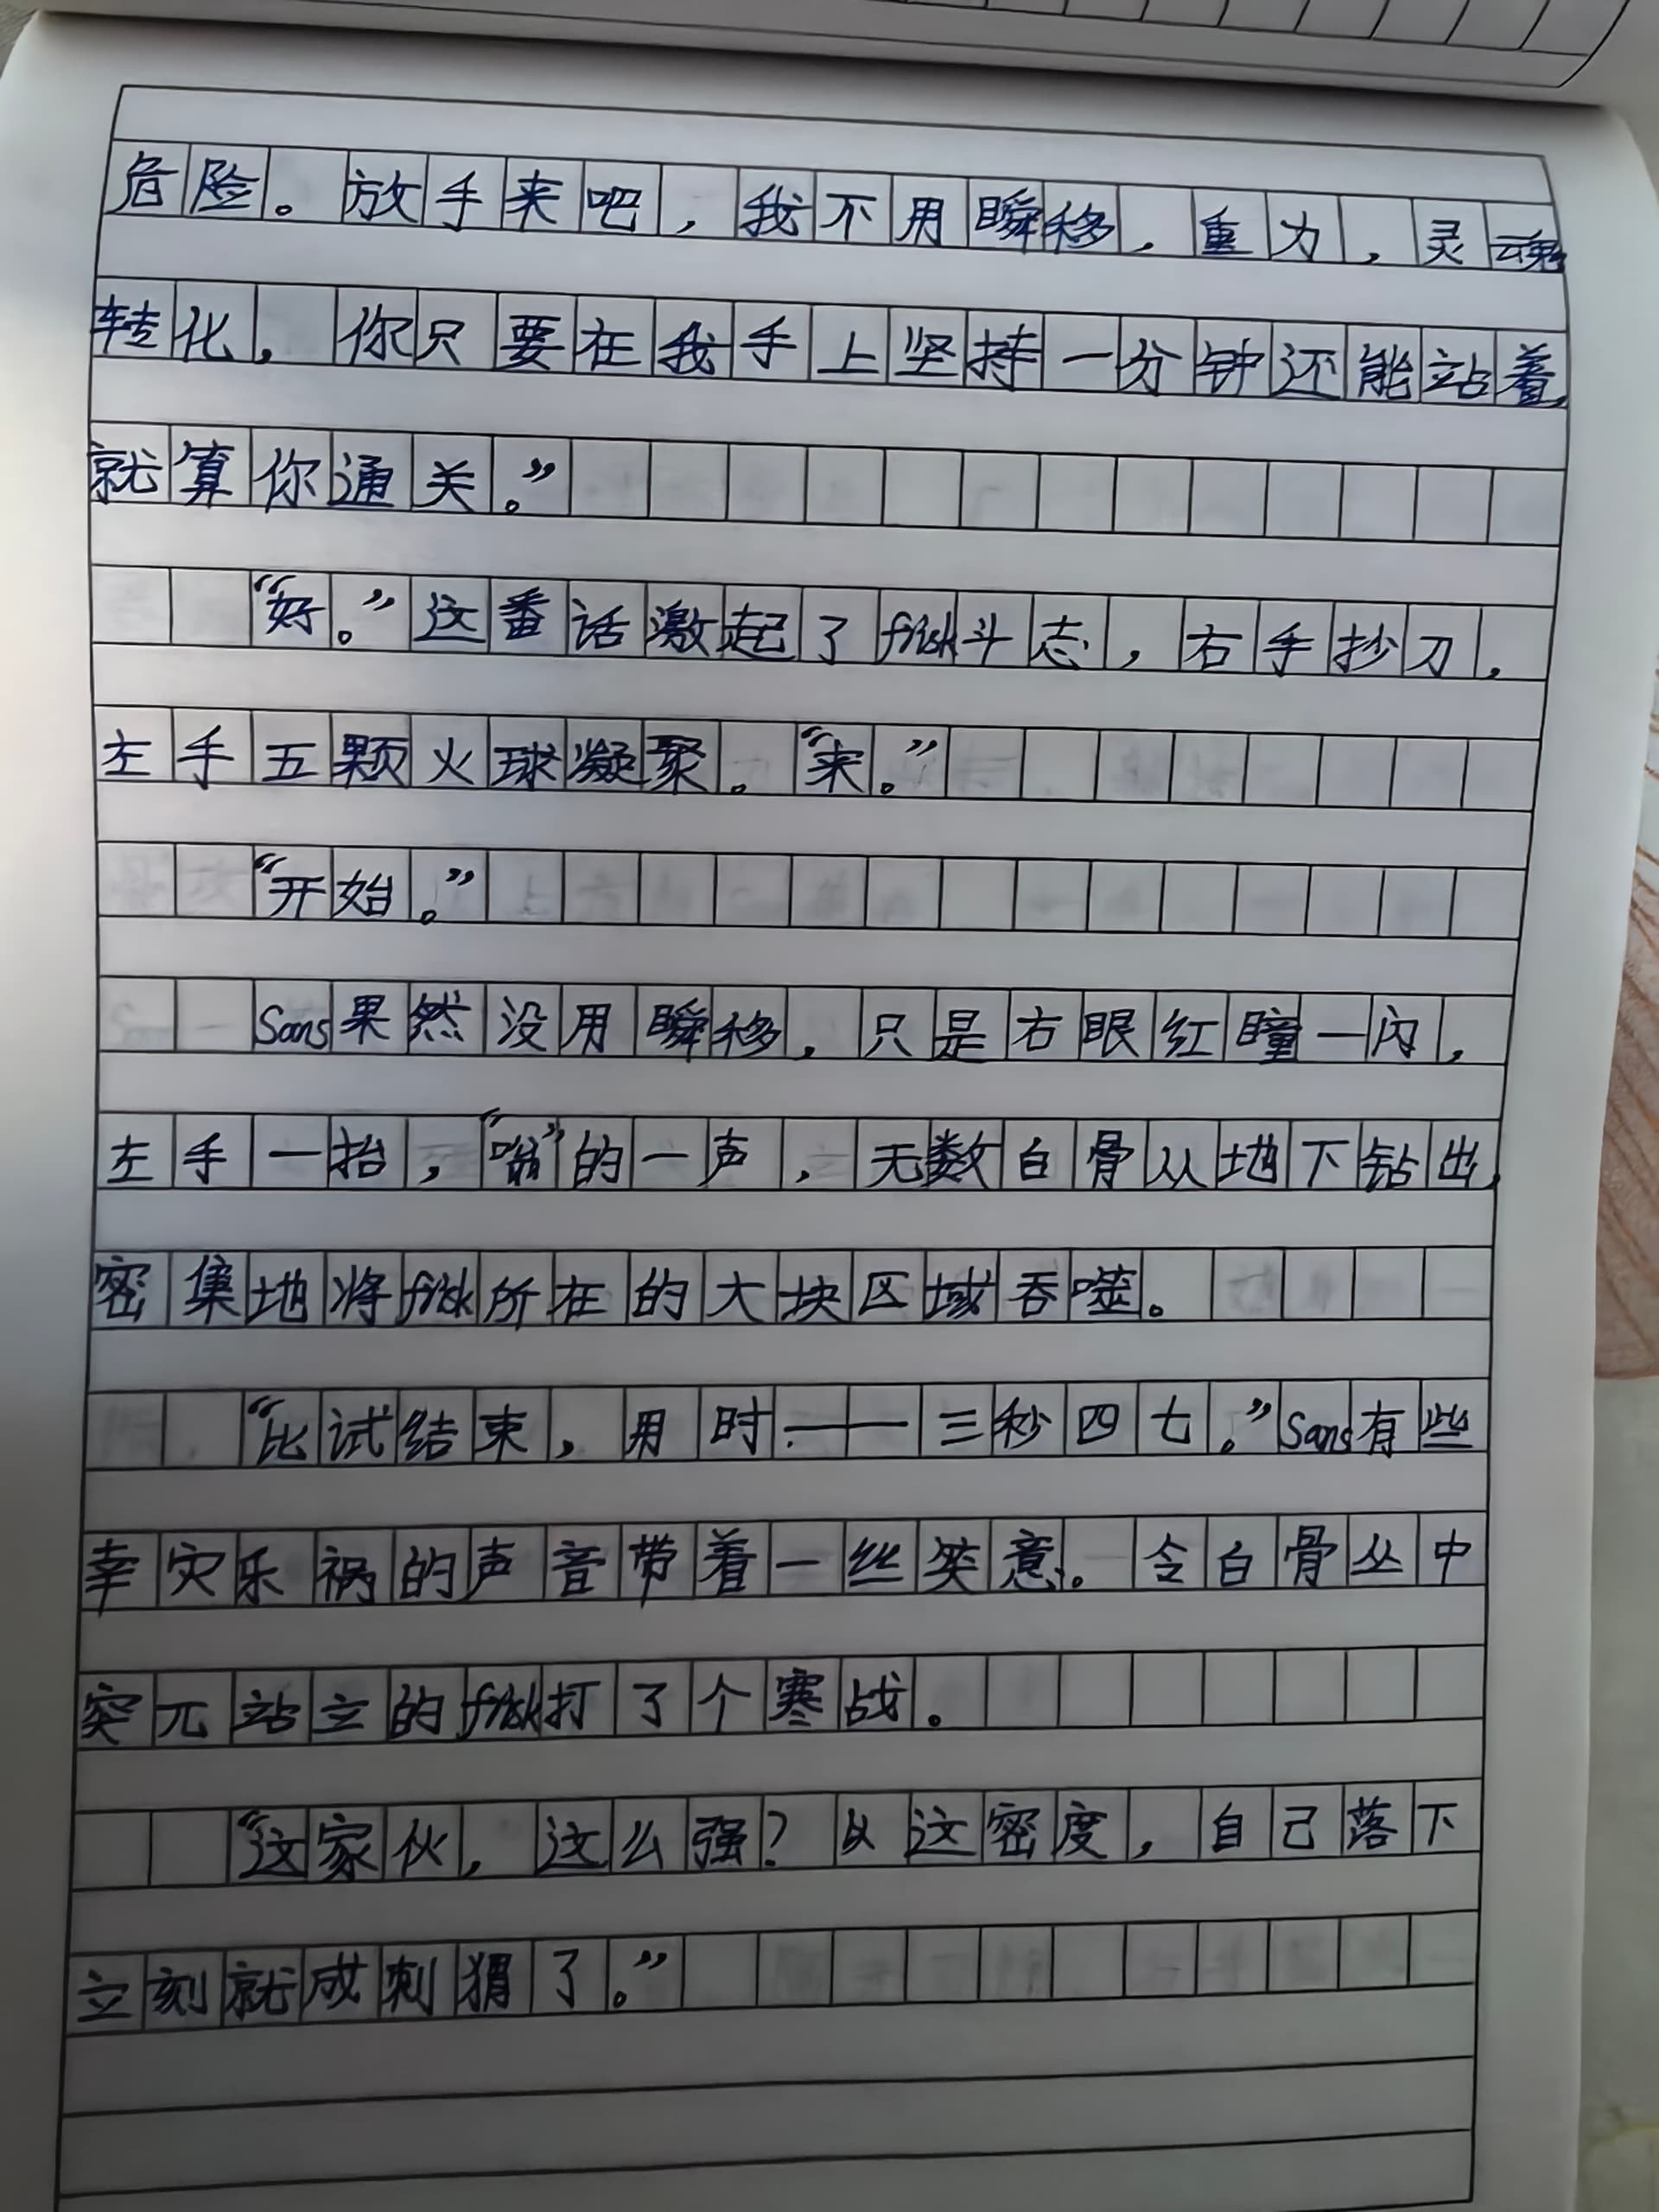 危险。放手来吧，我不用瞬移，重力，灵魂
转化，你只要在我手上坚持一分钟还能站着，
就算你通关。”
“好。”这番话激起了frisk斗志，右手抄刀，
左手五颗火球凝聚。“来。”
“开始。”
Sans果然没用瞬移，只是右眼红瞳一闪，
左手一抬，“嗡”的一声，无数白骨从地下钻出，
密集地将frisk所在的大块区域吞噬。
“比试结束，用时——三秒四七。”Sans有些
幸灾乐祸的声音带着一丝笑意。令白骨丛中
突兀站立的frisk打了个寒战。
“这家伙，这么强？以这密度，自己落下
立刻就成刺猬了。”